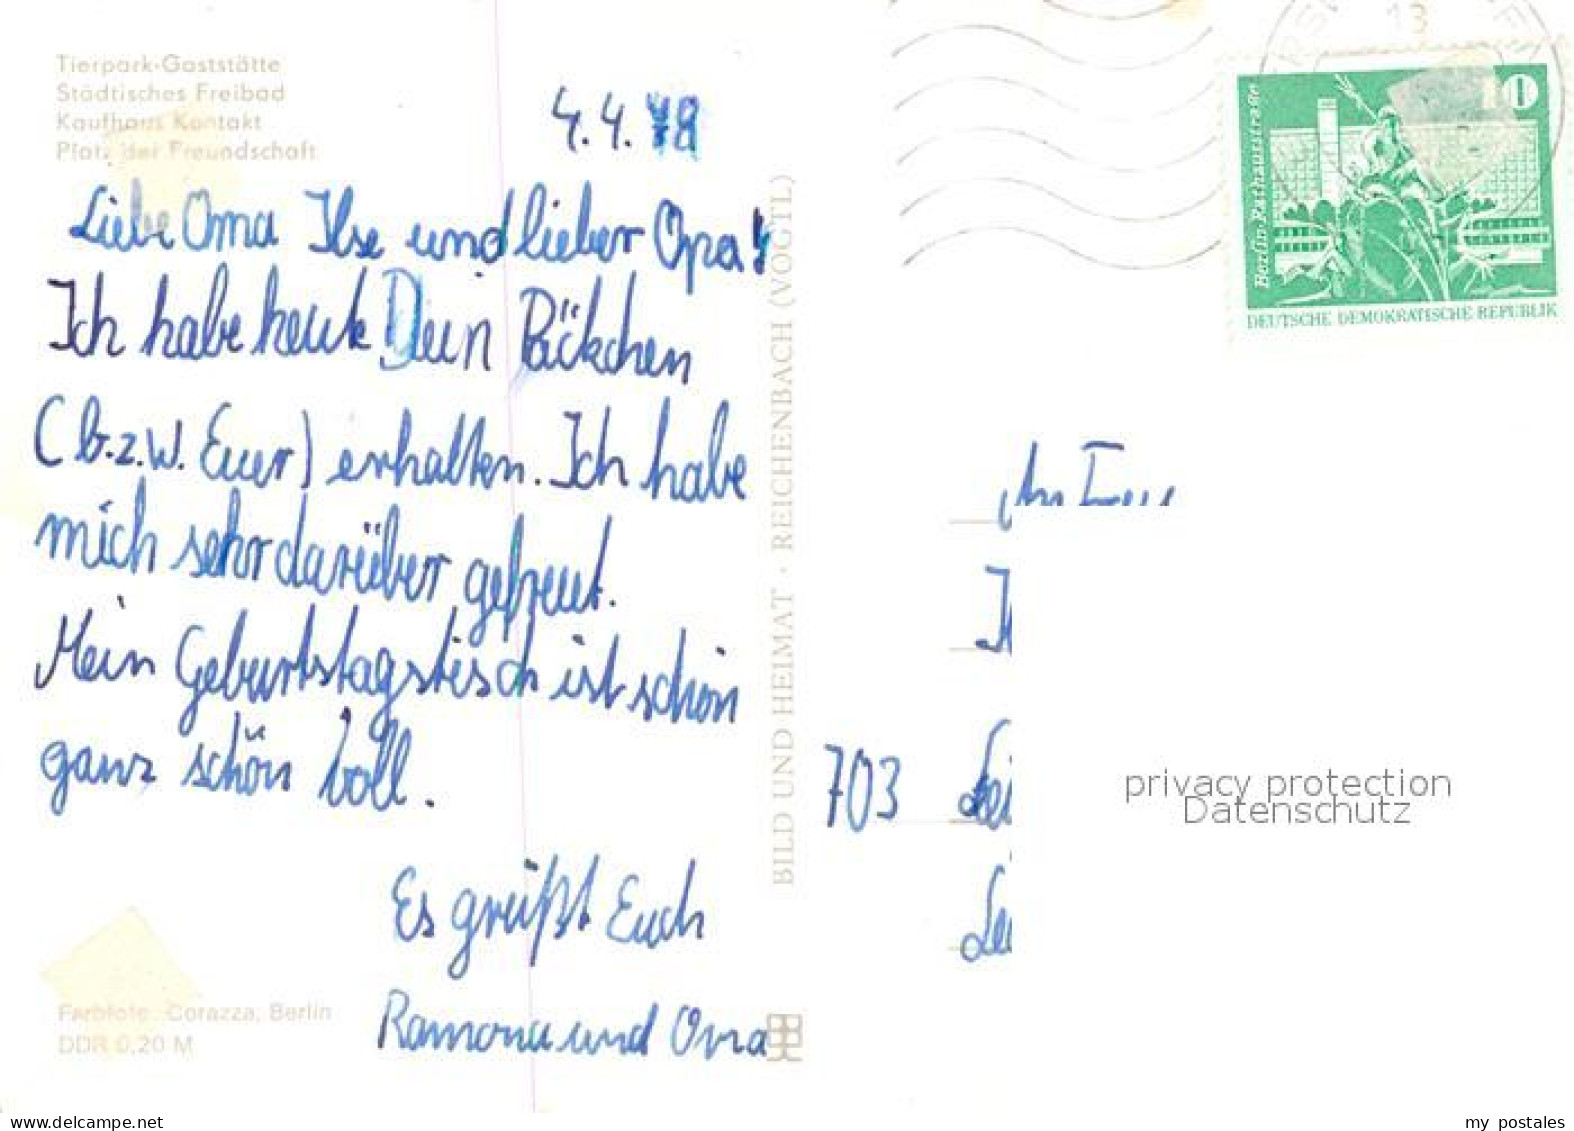 Tierpark-Gaststätte
Städtisches Freibad
Kaufhaus Kontakt
Platz der Freundschaft
4.4.78
Liebe Oma Ilse und lieber Opa!
Ich habe heute Dein Päckchen
(b.z.w. Euer) erhalten. Ich habe
mich sehr darüber gefreut.
Mein Geburtstagstisch ist schon
ganz schön voll.
Es grüßt Euch
Ramona und Oma
Farbfoto: Corazza, Berlin
DDR 0,20 M
BILD UND HEIMAT · REICHENBACH (VOGTL)
13
10
Berlin Rathausstraße
DEUTSCHE DEMOKRATISCHE REPUBLIK
703 Lei
Lei
privacy protection
Datenschutz
delcampe.net
my_postales